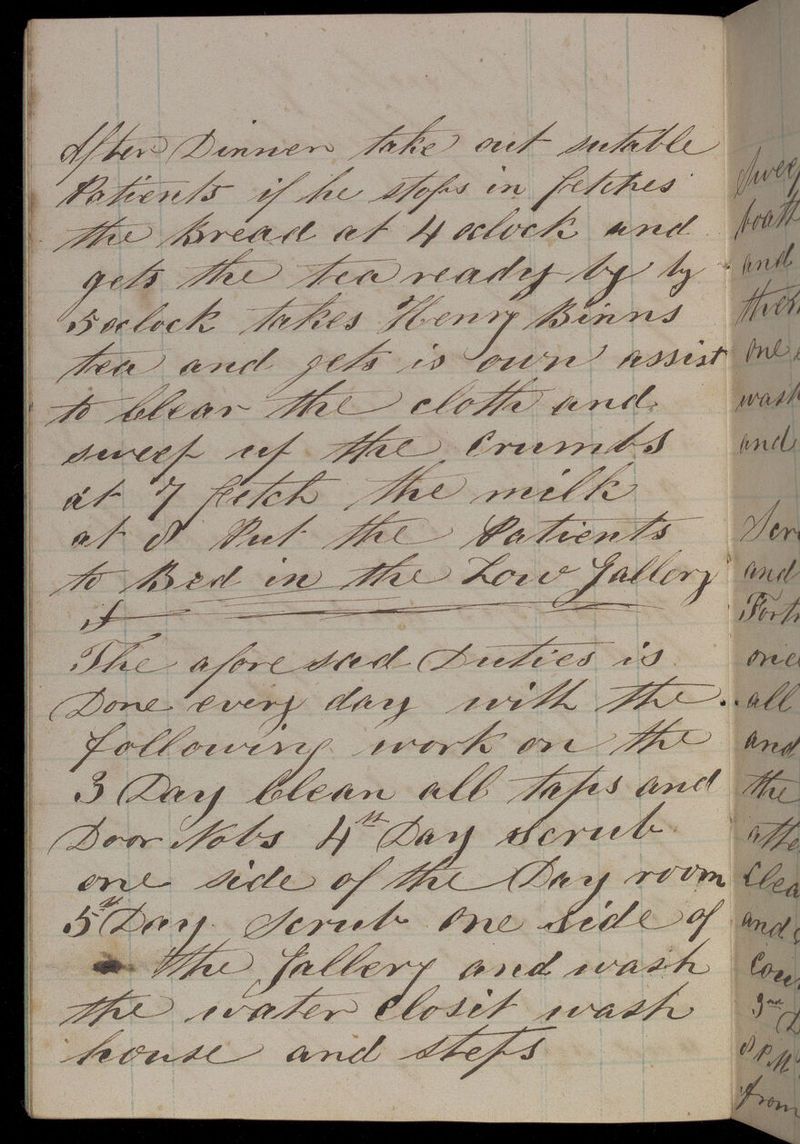 After Dinner take out sutable
Patients if he stops in fetches
the Bread at 4 oclock and
gets the tea ready by by
5 oclock takes Henry Binns
tea and gets is own assist
to Clear the cloth and
sweep up the Crumbs
at 7 fetch the milk
at 8 Put the Patients
to Bed in the Low Gallery
The afore sad Duties is
Done every day with the
following work on the
3 Day Clean all taps and
Door Nobs 4th Day Scrub
one side of the Day room
5th Day Scrub one side of
the Gallery and wash
the water Closit wash
house and steps
Sweep
boath
and
them
one
wash
and
Scr
and
Forth
once
all
and
the
afte
Clea
and
Cou
3rd D
8 P.M
from